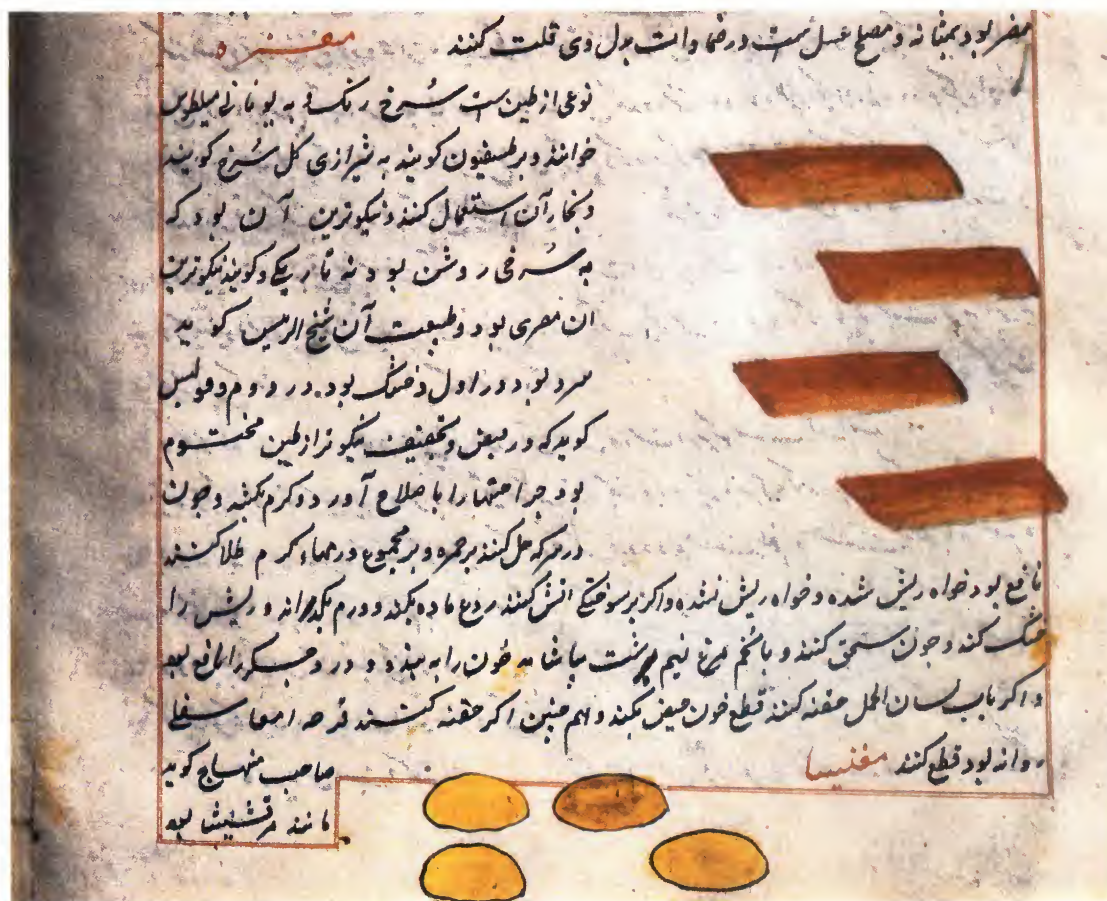 مضر بود بمثانه و مصلح عسل است و در ضمادات بدل وی قلت کنند مغره
نوعی از طین است سرخ رنک و به یونانی میلطوس
خوانند و برطسفیون کویند به شیرازی کل سرخ کویند
و نجار آن استعمال کنند و نیکوترین آن بود که
به سرخی روشن بود نه تاریکی و کویند نیکوترین
ان مصری بود و طبیعت آن شیخ الرییس کوید
سرد بود در اول و خشک بود در دوم و فولس
کوید که در قبض و تجفیف نیکوتر از طین مختوم
بود جراحتها را با صلاح آورد و کرم بکشد و چون
در سرکه حل کنند بر حمره و بر مجموع ورمهاء کرم طلا کنند
نافع بود خواه ریش شده و خواه ریش نشده و اکر بر سوختکی اتش کنند ردع ماده بکند و ورم بکدراند و ریش را
خشک کند و چون سحق کنند و با تخم مرغ نیم برشت بیاشامد خون را به بندد و درد جکر را نافع بود
و اکر باب لسان الحمل حقنه کنند قطع خون حیض بکند و هم چنین اکر حقنه کنند قرحه امعا سفلی
روانه بود قطع کنند مغنیسا صاحب منهاج کوید
مانند مرقشیشا بود